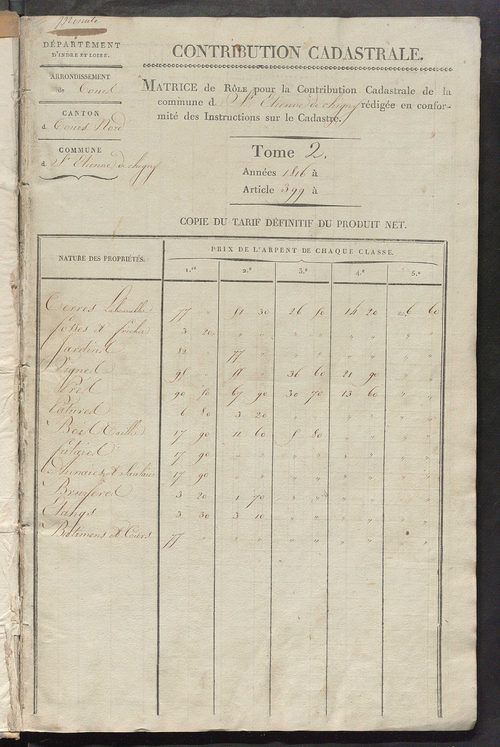 Minute
DÉPARTEMENT
D'INDRE ET LOIRE.
ARRONDISSEMENT
de Tours
CANTON
d Tours Nord
COMMUNE
d St Etienne de chigny
CONTRIBUTION CADASTRALE.
MATRICE de RÔLE pour la Contribution Cadastrale de la
commune d St Etienne de chigny rédigée en confor-
mité des Instructions sur le Cadastre.
Tome 2.
Années 1816 à
Article 399 à
COPIE DU TARIF DÉFINITIF DU PRODUIT NET.
NATURE DES PROPRIÉTÉS.
PRIX DE L'ARPENT DE CHAQUE CLASSE.
1.re 2.e 3.e 4.e 5.e
Terres Labourables 77 " 51 30 26 50 14 20 6 60
3 20 " " " " " " " "
Jardins 82 " 77 " " " " " "
Vignes 98 " 36 60 21 90 " "
Prés 90 50 67 90 30 70 13 60 " "
Patures 6 80 3 20 " " " " " "
Bois Taillis 17 90 11 60 5 80 " " " "
futaies 17 90 " " " " " " " "
17 90 " " " " " " " "
Bruyeres 3 20 1 70 " " " " " "
Etangs 3 30 3 10 " " " " " "
Bâtimens et Cours 77 " " " " " " " " "